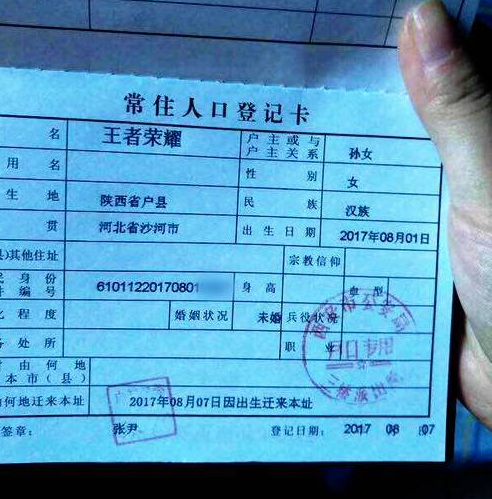 常住人口登记卡
名 王者荣耀 户主或与户主关系 孙女
用名 性别 女
生地 陕西省户县 民族 汉族
贯 河北省沙河市 出生日期 2017年08月01日
县)其他住址 宗教信仰
民身份件编号 61011220170801 身高 血型
化程度 婚姻状况 未婚 兵役状况
务处所 职业
时由何地
本市(县)
何地迁来本址 2017年08月07日因出生迁来本址
签章: 张尹 登记日期: 2017 08 07
西安市公安局
户口专用